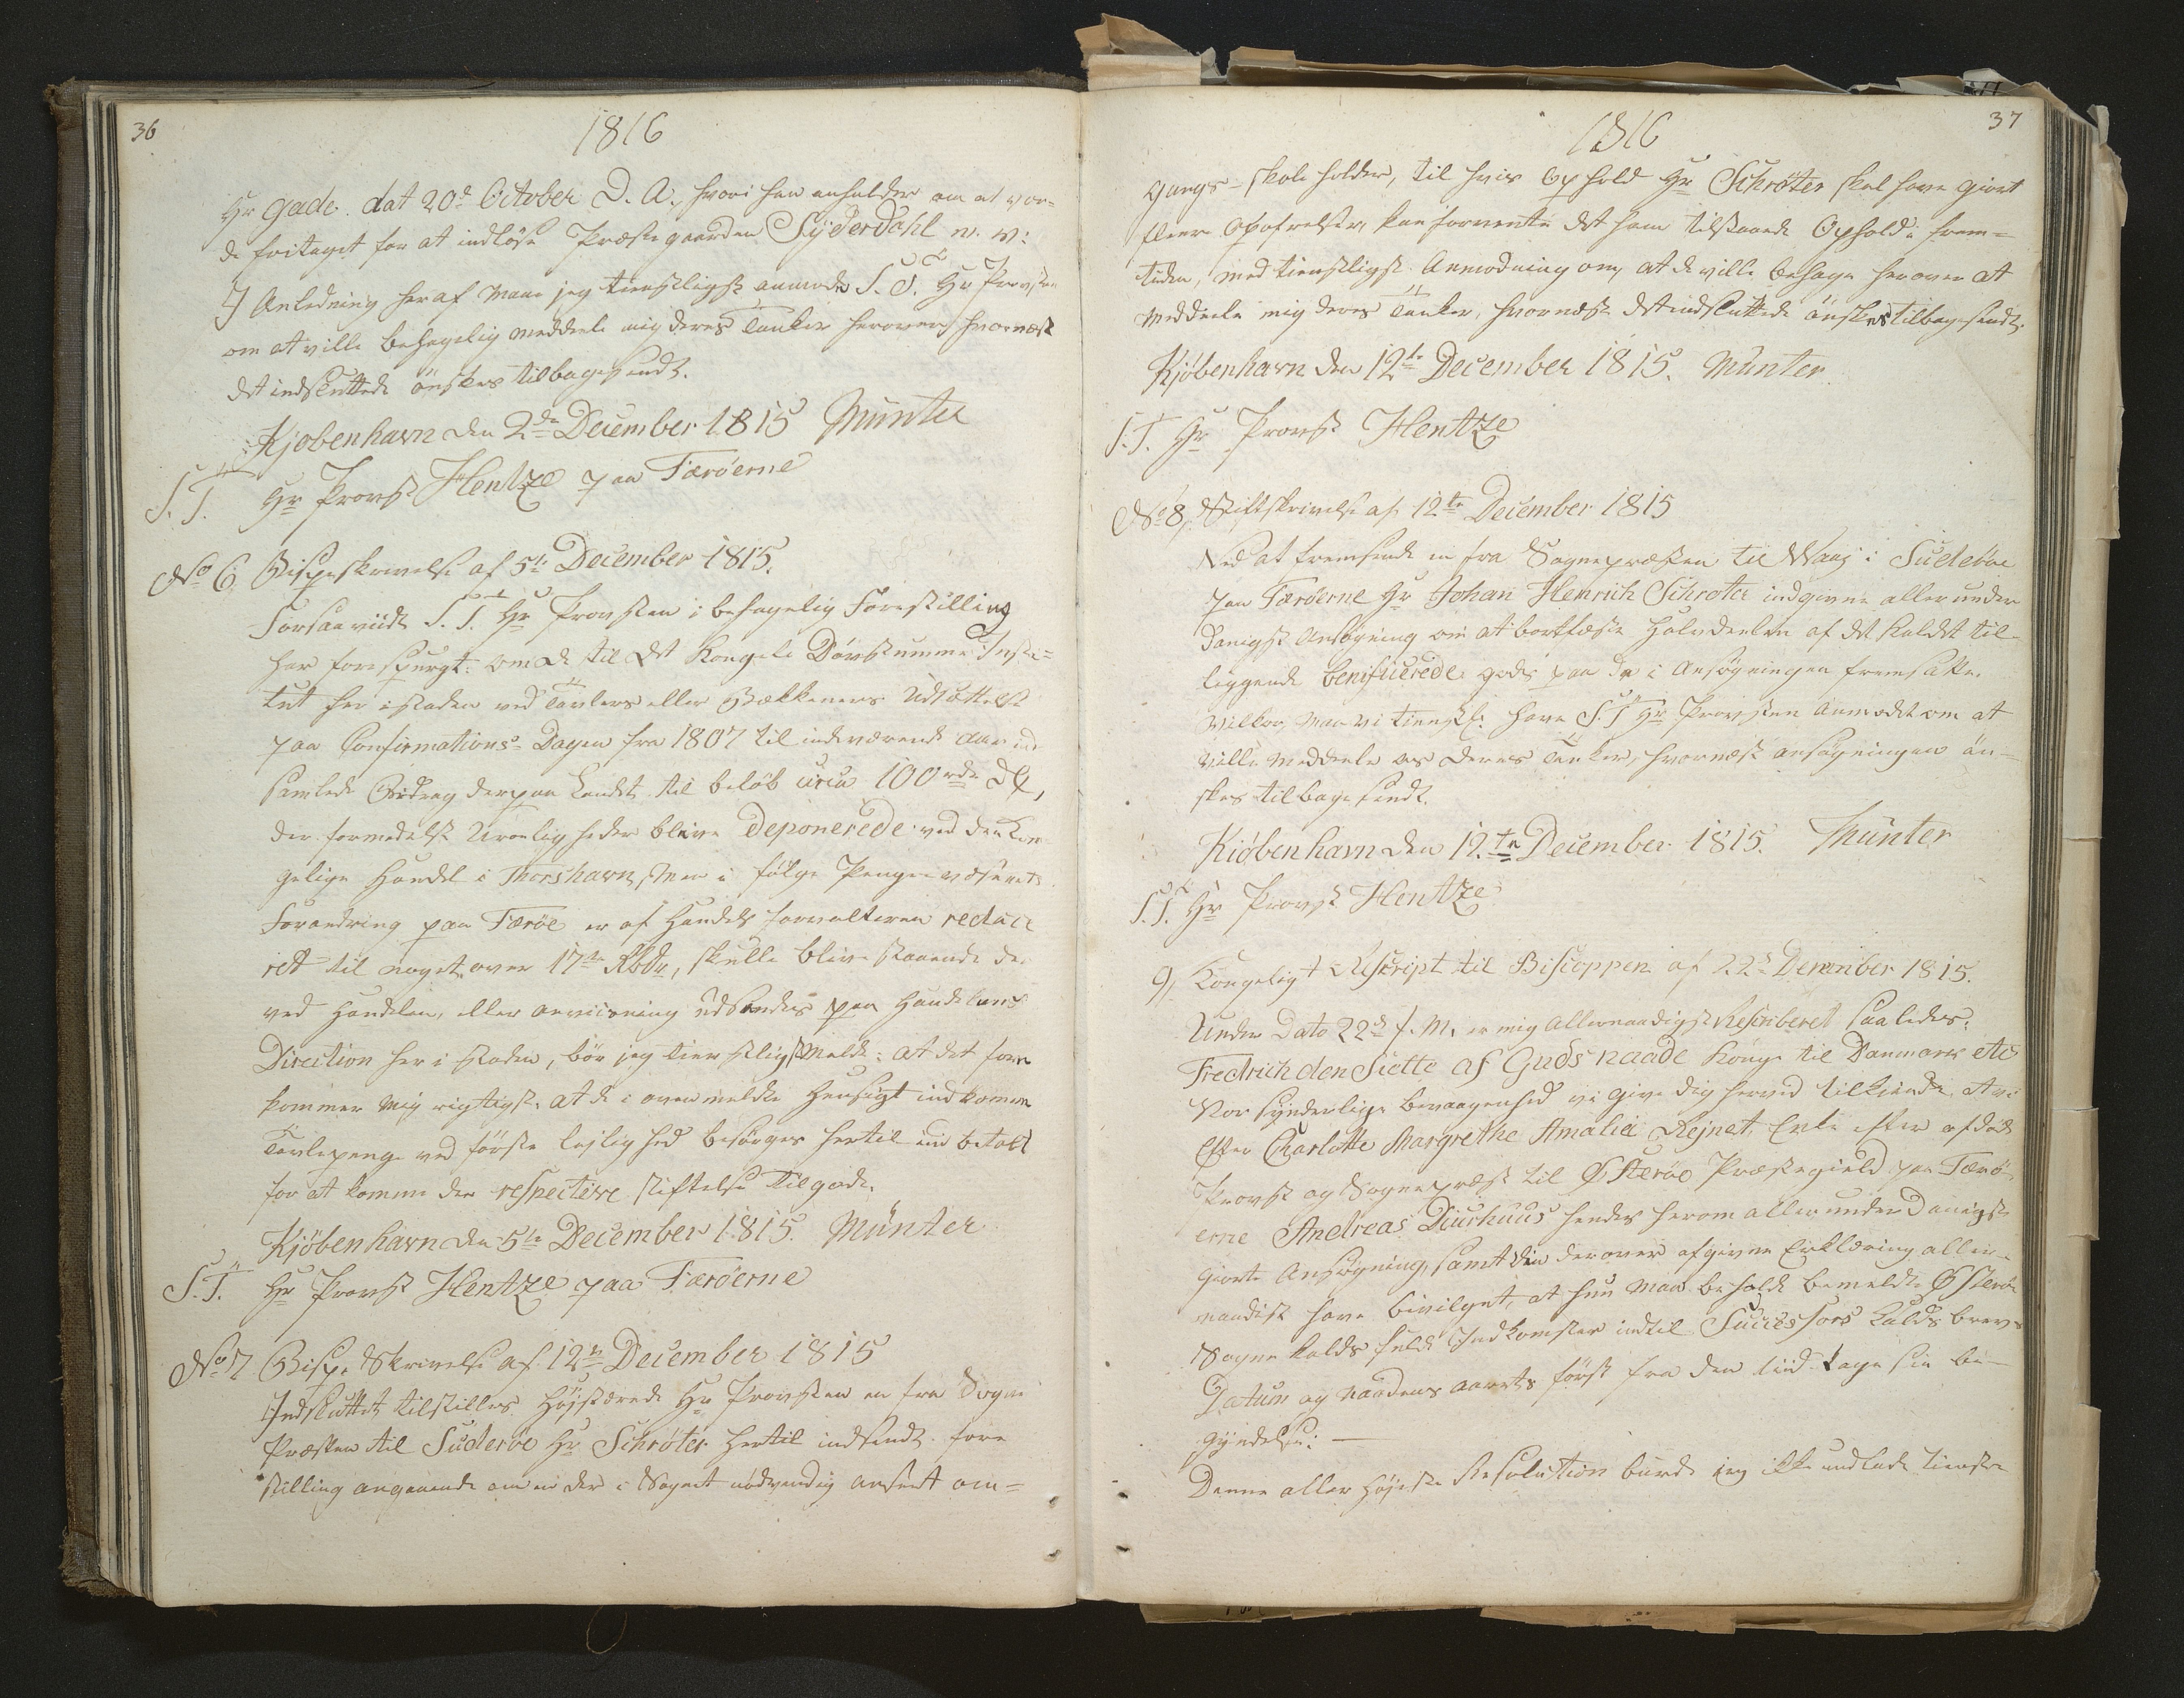 36
1816
Hr Gade. dat 20de October D. A., hvori han anholder om at vor-
de fritaget for at indløse Præstegaarden Syderdahl m. v:
I Anledning heraf maae jeg tienstligst anmode S. T. Hr Provsten
om at ville behagelig meddeele mig deres Tanker herover, hvornæst
det indsluttede önskes tilbagesendt.
Kjøbenhavn den 2de December 1815 Münter
S. T. Hr Provst Hentze paa Færöerne
No 6, Bispeskrivelse af 5te December 1815.
Forsaavidt S. T. Hr Provsten i behagelig Forestilling
har forespurgt: om de til det Kongele Døvstumme Insti-
tut her i staden ved Tavlers eller Bækkeners Udsættelse
paa Confirmations-Dagen fra 1807 til indeværende Aar ind
samlede Bidrag derpaa Landet til beløb circa 100 rdr DC,
der formedelst Uroeligheder bleve deponerede ved den Kon
gelige Handel i Thorshavn, men i følge Pengevæsenets
Forandring paa Færöe er af Handels forvalteren reduce
ret til noget over 17 Rbdr, skulle blive staaende der
ved Handelen, eller anviisning udstædes paa Handelens
Direction her i Staden, bör jeg tienstligst melde: at det fore
kommer mig rigtigst, at de i ovenmeldte Hensigt indkomne
Tavlepenge ved første lejlighed besørges hertil ind betalt
for at komme den respective stiftelse til gode.
Kjöbenhavn den 5te December 1815. Münter
S. T. Hr Provst Hentze paa Færöerne
No 7 Bispe Skrivelse af 12te December 1815
Indsluttet tilstilles Højstærede Hr Provsten en fra Sogne
Præsten til Suderöe Hr Schröter hertil indsendt fore
stilling angaaende om en der i Sognet nödvendig anseet om-
37
1816
gangs-skoleholder, til hvis Ophold Hr Schröter skal have giort
fleere Opofrelser, kan forvente det ham tilstaaede Ophold i frem-
tiden, med tienstligst Anmodning om, at de ville behage herover at
meddeele mig deres Tanker, hvornæst det indsluttede önskes tilbagesendt.
Kjöbenhavn den 12te December 1815. Münter
S. T. Hr Provst Hentze
No 8, Stiftskrivelse af 12te December 1815
Ved at fremsende en fra Sognepræsten til Waag i Suderöe
paa Færöerne Hr Johan Henrich Schröter indgiven allerunder
danigst Ansøgning om at bortfæste Halvdeelen af det Kaldet til-
liggende benificerede gods paa de i Ansøgningen fremsatte
Vilkor, maa vi tienstl: have S. T. Hr Provsten anmodet om at
ville meddeele os deres Tanker, hvornæst ansøgningen ön-
skes tilbagesendt.
Kiöbenhavn den 12te December 1815. Münter
S. T. Hr Provst Hentze
9, Kongeligt Rescript til Biscoppen af 22de December 1815.
Under Dato 22de f. M. er mig Allernaadigst Rescriberet saaledes:
Fredrich den Siette af Guds naade Konge til Danmark etc
Vor synderlige bevaagenhed vi give dig herved tilkiende at vi
efter Charlotte Margrethe Amalia Rejnet, Enke efter afdøde
Provst og Sognepræst til Østeröe Præstegield paa Færö-
erne Andreas Diurhuus hendes herom allerunderdanigst
giorte Ansøgning, samt din derover afgivne Erklæring aller-
naadist have bevilget, at hun maa beholde bemeldte Østeröe
Sogne kalds fulde Indkomster indtil Successors Kalds brevs
Datum og Naadens aarets først fra den tiid tage sin be-
gyndelse: —
Denne allerhøjeste Resolution burde jeg ikke undlade tienste